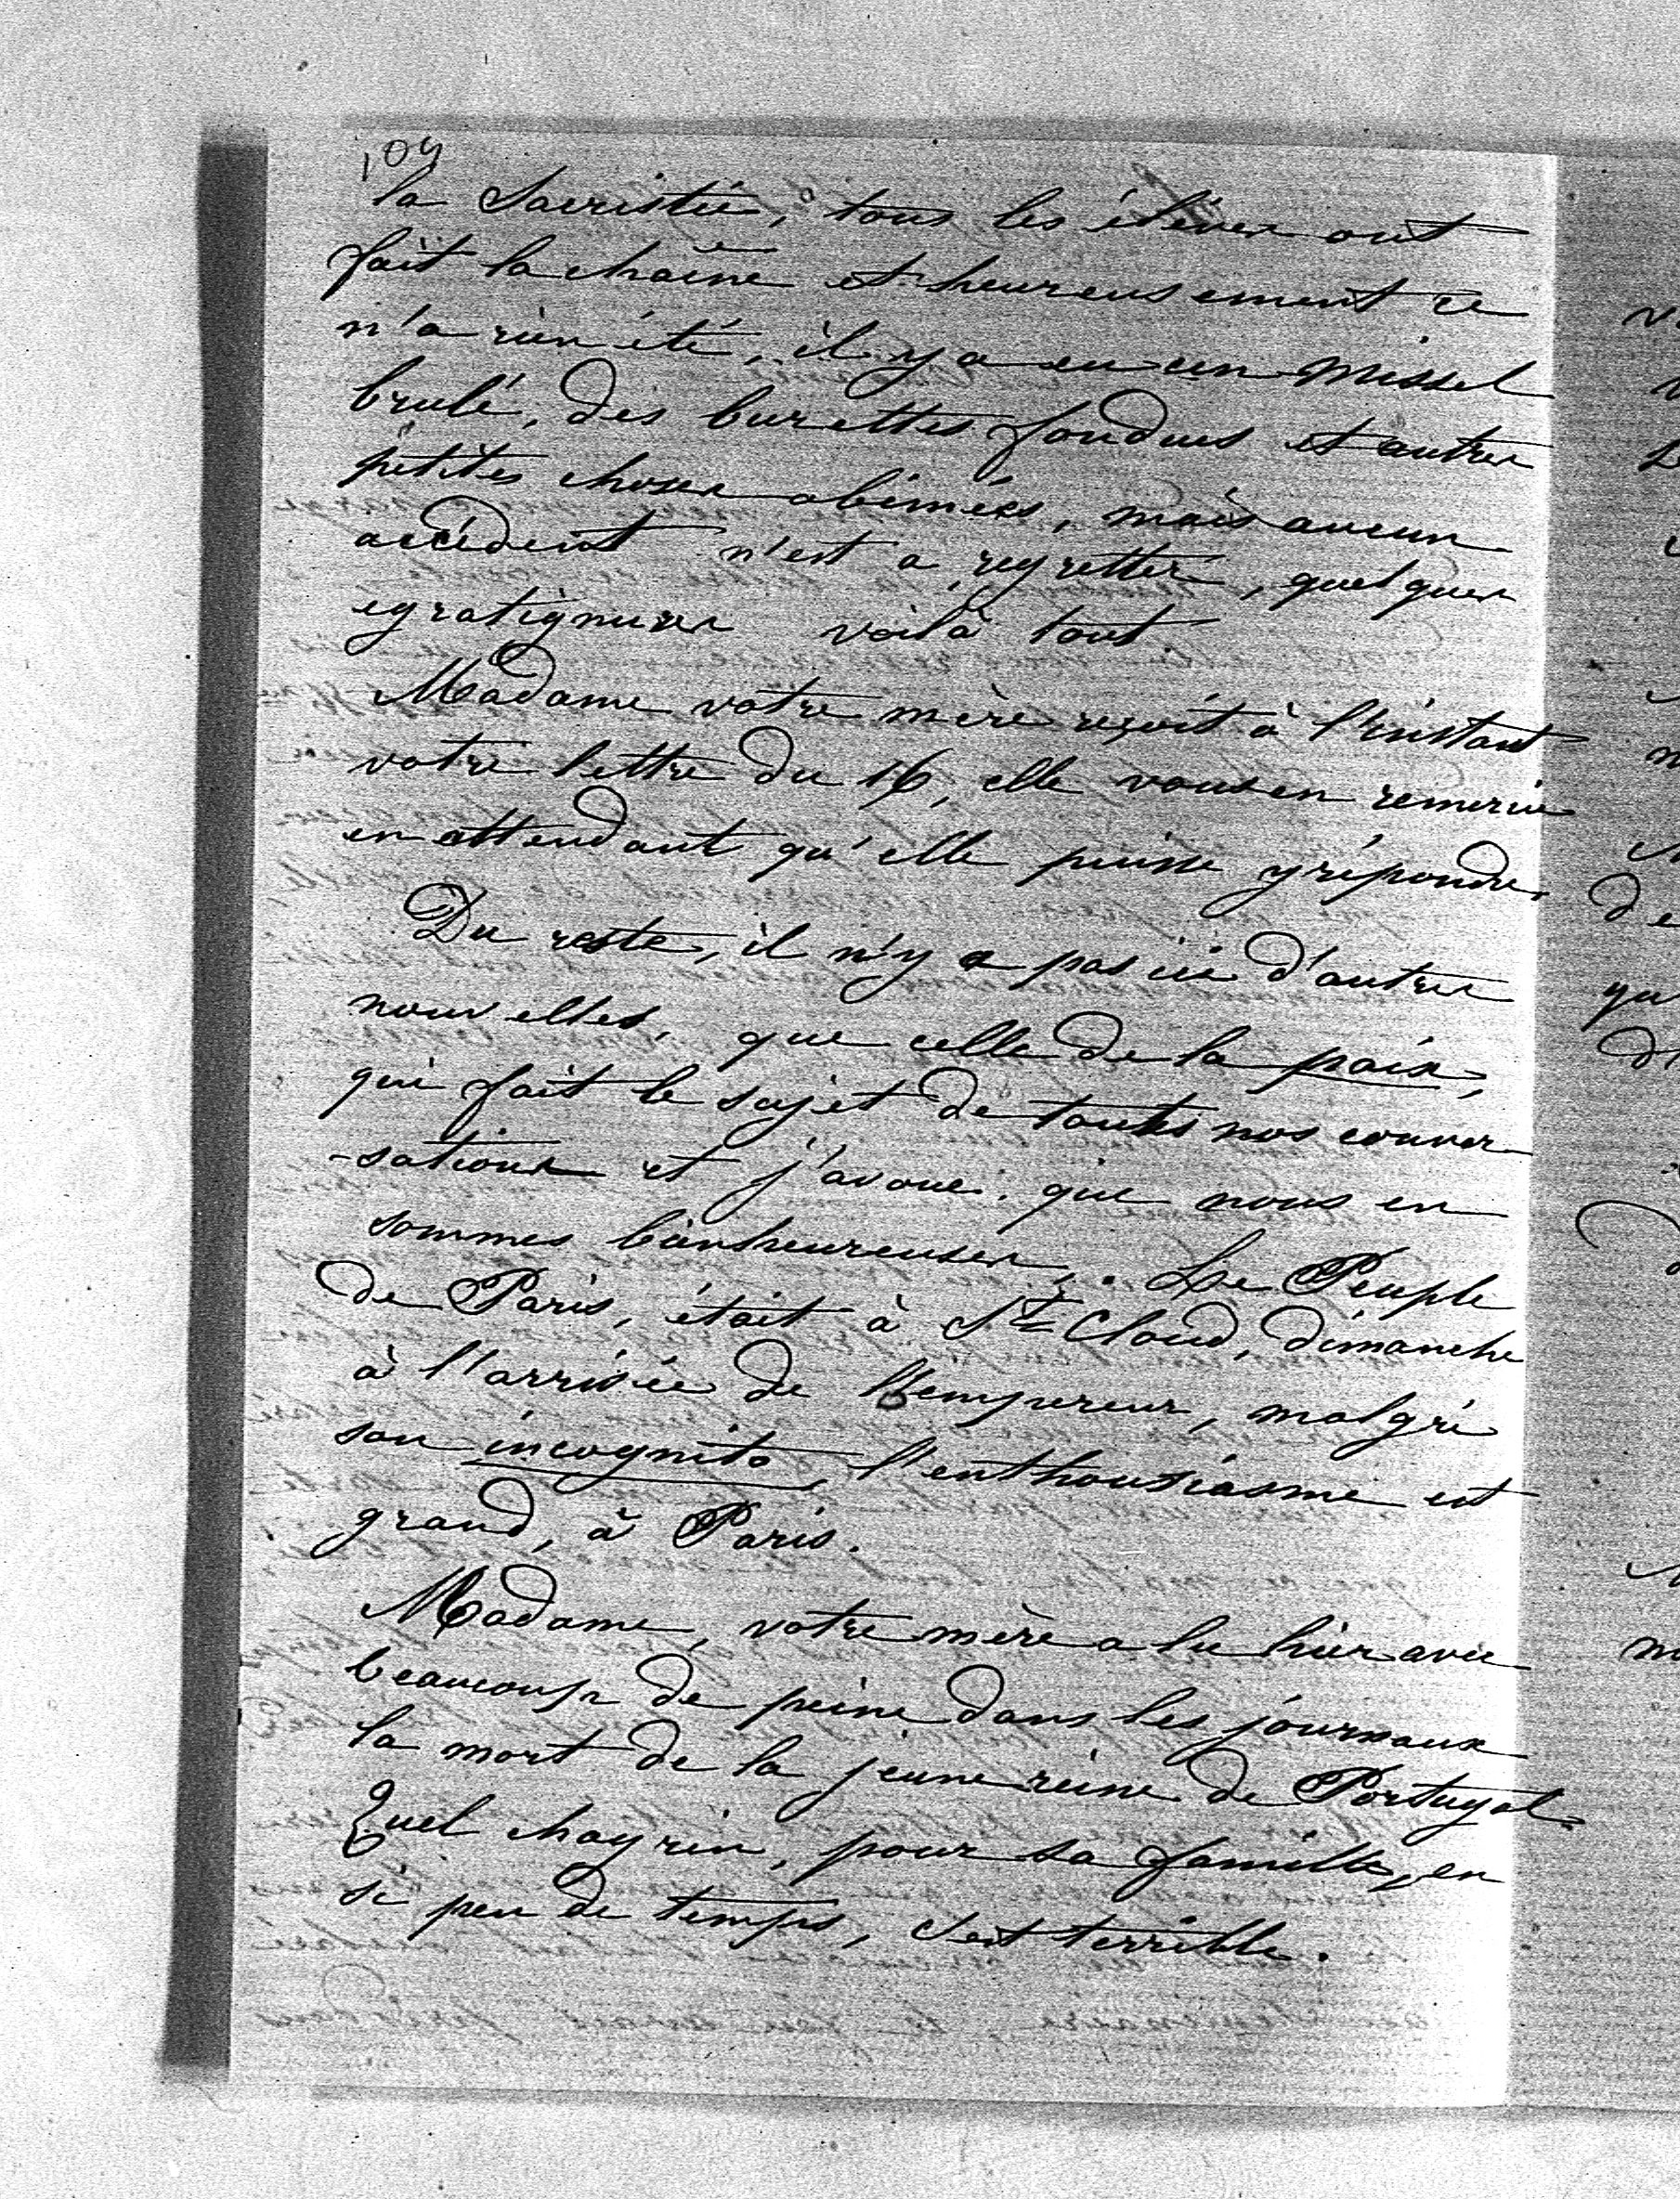 109
la Sacristie, tous les élèves ont
fait la chaine et heureusement ce
n'a rien été, il y a eu un Missel
brulé, des burettes fondues et autres
petites choses abimées, mais aucun
accident n'est a regretter, quelques
egratignures voilà tout
Madame votre mère reçoit à l'instant
votre lettre du 16, elle vous en remercie
en attendant qu'elle puisse y répondre,
Du reste, il n'y a pas ici d'autres
nouvelles, que celle de la paix,
qui fait le sujet de toutes nos conver
-sations et j'avoue, que nous en
sommes bienheureuses. Le Peuple
de Paris, était à St Cloud, dimanche
à l'arrivée de l'empereur, malgré
son incognito, l'enthousiasme est
grand, à Paris.
Madame, votre mère a lu hier avec
beaucoup de peine dans les journaux
la mort de la jeune reine de Portugal.
Quel chagrin, pour sa famille, en
si peu de temps, c'est terrible.